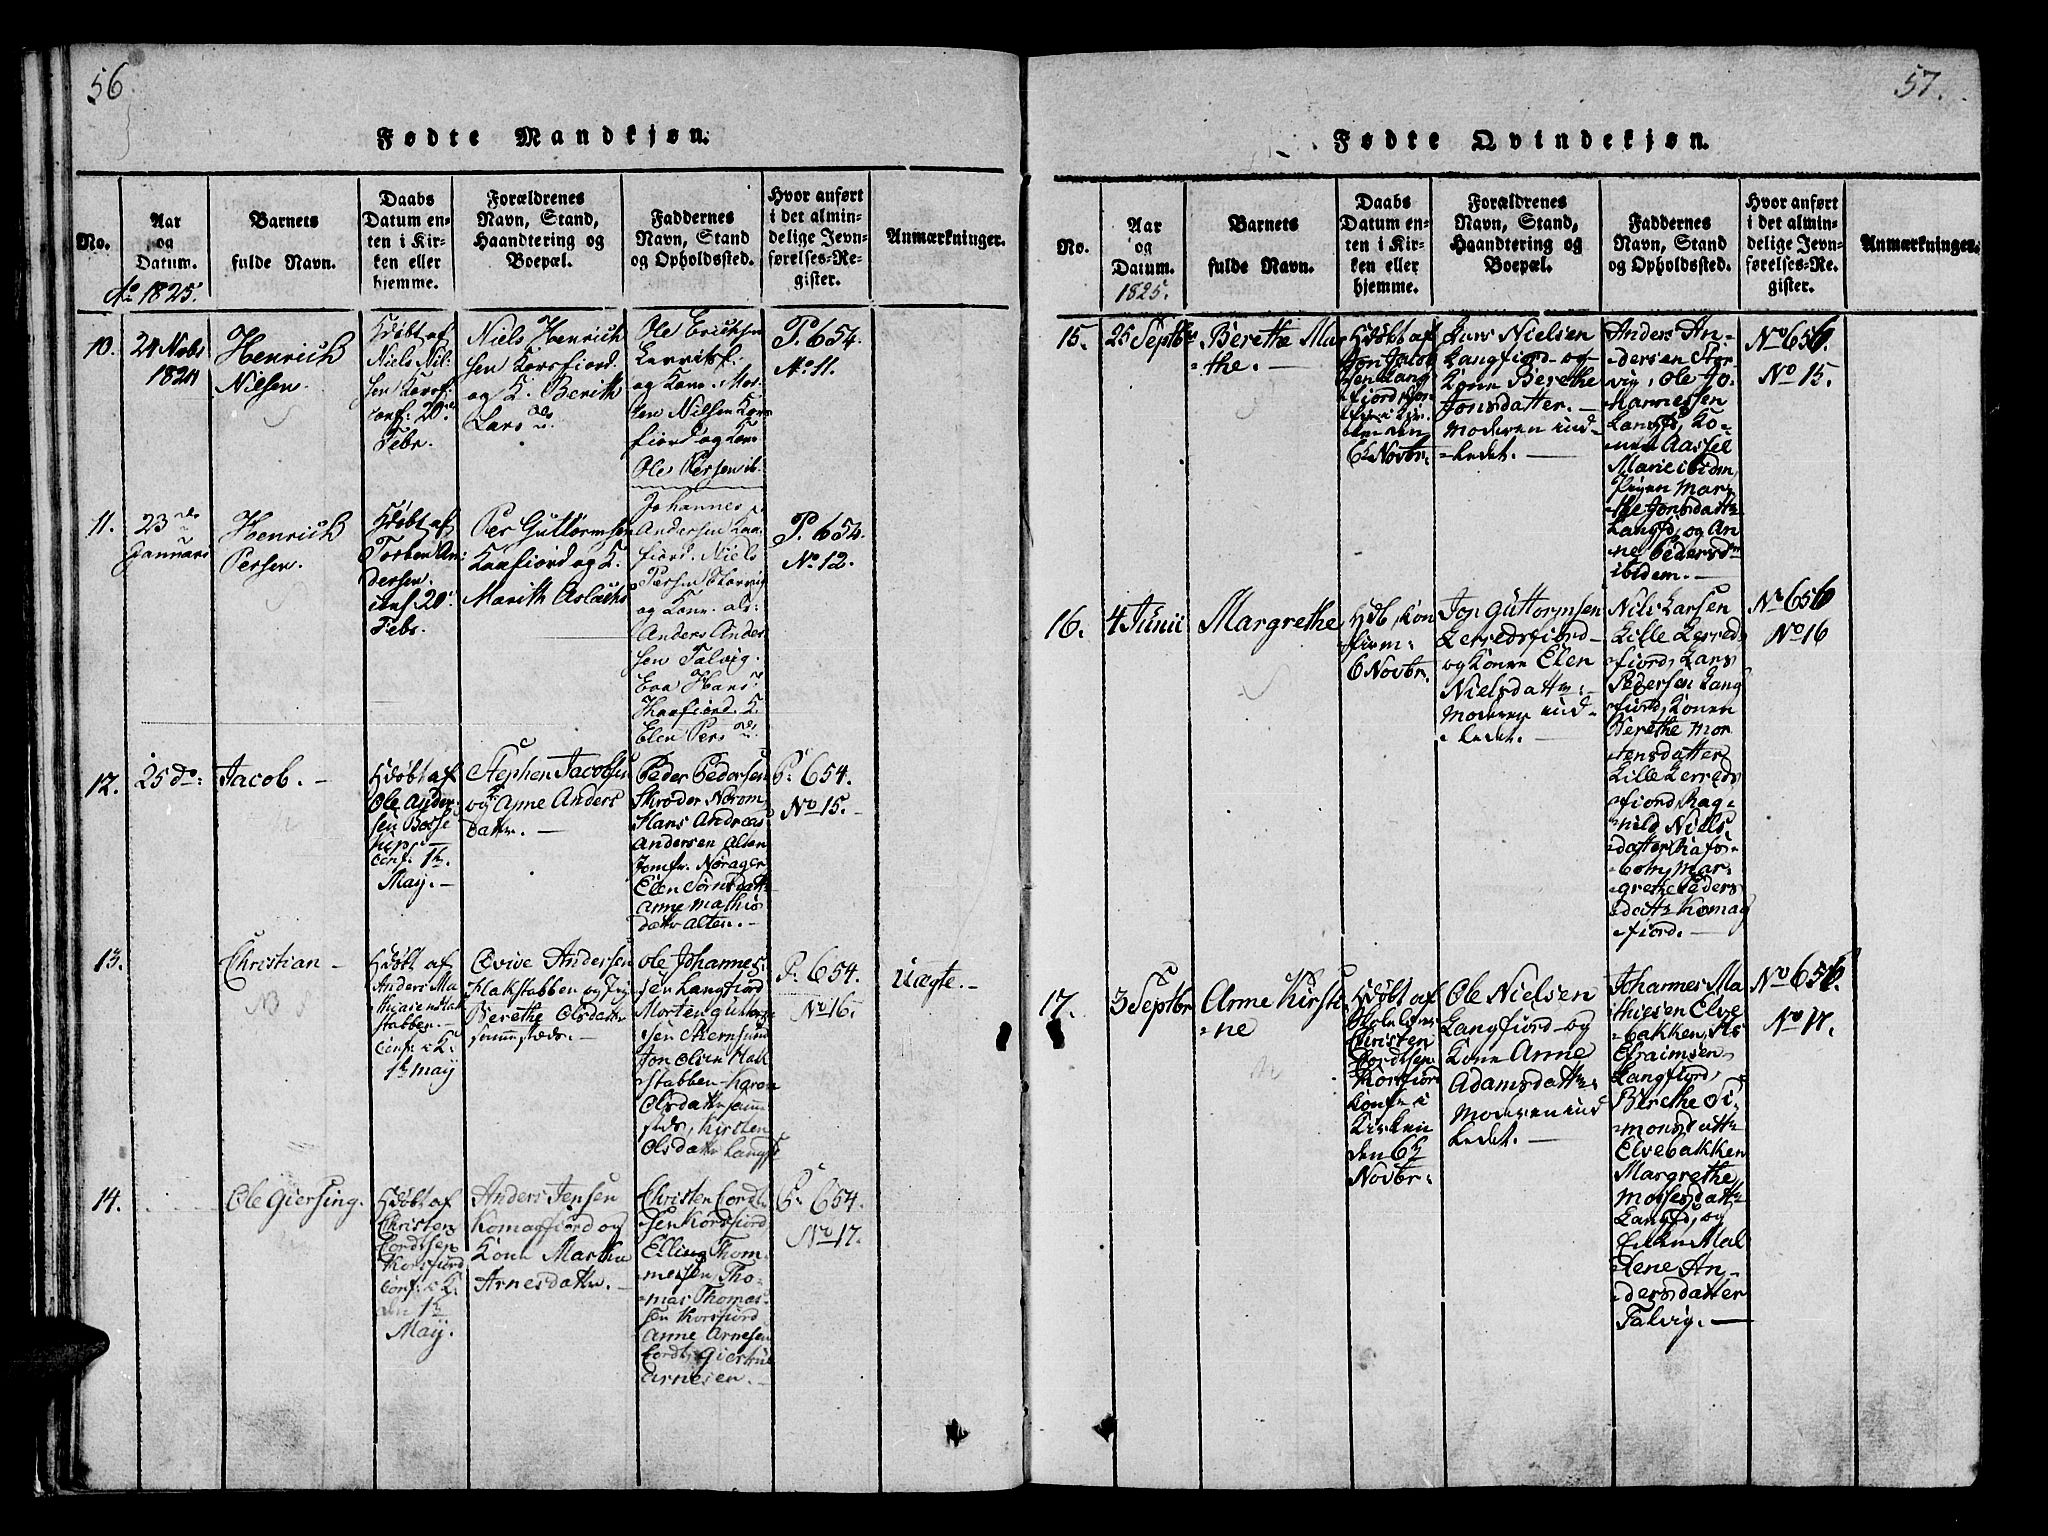 56
Fødte Mandkjøn.
No.
Aar
og
Datum.
Ao 1825.
Barnets
fulde Navn.
Daabs
Datum en-
ten i Kir-
ken eller
hjemme.
Forældrenes
Navn, Stand,
Haandtering og
Boepæl.
Faddernes
Navn, Stand
og Opholdssted.
Hvor anført
i det almin-
delige Jevn-
førelses-Re-
gister.
Anmærkninger.
10.
24 Nobr
1824
Henrich
Nilsen.
Hdøbt af
Niels Nil-
sen Korsf.
conf: 20de
Febr.
Niels Henrich
sen Korsfiord.
og K. Berith
Lars dr.
Ole Ericksen
Lerritsf.
og Kone. Mor-
ten Nilsen Kors
fiord og Kone
Ole Persen ib.
P. 654.
No. 11.
11.
23de
Januari
Henrich
Persen.
Hdøbt af
Torben An
dersen.
conf: 20.
Febr.
Per Guttormsen
Kaafiord og K.
Marith Aslachs
Johannes
Andersen Kaa
fiord. Niels
Persen Storvig
og Kone.
Anders Ander
sen Talvig.
Eva Hans
Kaafiord. K.
Elen Pers
P. 654.
No. 12.
12.
25 do:
Jacob. –
Hdøbt af
Ole Ander-
sen Bosse
kop. –
Conf: 1te
May. –
Stephen Jacobsen
og K. Anne Anders
datter. –
Peder Pedersen
Skrøder Norom
Hans Andreas
Andersen Alten
Jomfr. Norager
Elen Sørnsdatt
Anne Mathis
datter Alten. –
P: 654.
No 15. –
13.
Christian –
Hdøbt af
Anders Ma
thiasen Flak
stabben. –
Conf: i K:
1te may
Andersen
Flakstabben og
Berethe Olsdatter
sammesteds. –
Ole Johannes-
sen Langfiord
Morten Guttorm
sen Stiernsund
Jon Olsen Flak
stabben – Karen
Olsdatter samme
steds, Kirsten
Olsdatter Langf.
P. 654.
No 16.
Uægte. –
14.
Ole Giersing.
Hdøbt af
Christen
Cordtsen
Korsfiord
Conf: i K:
den 1te
May.
Anders Jensen
Komagfiord og
Kone Marthe
Arnesdatter. –
Christen Cordt
sen Korsfiord
Elling Thom
mesen Tho-
mas Thomas
sen Korsfiord
Anne Arnesen
Arnesen. –
P: 654.
No 17.
57.
Fødte Qvindekjøn.
No.
Aar
og
Datum.
1825.
Barnets
fulde Navn.
Daabs
Datum en-
ten i Kir-
ken eller
hjemme.
Forældrenes
Navn, Stand,
Haandtering og
Boepæl.
Faddernes
Navn, Stand
og Opholdssted.
Hvor anført
i det almin-
delige Jevn-
førelses-Re-
gister.
Anmærkninger.
15.
25 Septbr
Berethe Mar
the. –
Hdøbt af
Jon Jacob
sen Lang
fiord, kon
firm: i Kir-
ken den
6te Novbr:
Lars Nielsen
Langfiord og
Kone Berethe
Jonsdatter. –
Moderen ind-
ledet. –
Anders An-
dersen Stor
vig, Ole Jo-
hannessen
Langf, Ko-
nen Aassel
Marie ibidem
Pigen Mar
the Jonsdattr
Langfd, og An
ne Pedersdtr
ibidem. –
No 656.
No 15.
16.
4 Junii
Margrethe
Hdb, kon
firm:
6 Novbr.
Jon Guttormsen
Lerredsfiord
og Konen Elen
Nielsdatter:
Moderen ind-
ledet. –
Nils Larsen
Lille Lerreds
fiord, Lars
Pedersen Lang
fiord, Konen
Berethe Mor
tensdatter
Lille Lerreds
fiord, Rag-
nild Niels
datter Rafs-
botn, Mar-
grethe Peders
datter Komag
fiord. –
No 656
No 16
17.
3 Septbr
Anne Kirsti
ne
Hdøbt af
Christen
Cordtsen
Korsfiord
konfr. i
Kirken
den 6te
Novbr:
Ole Nielsen
Langfiord og
Kone Anne
Adamsdatter.
Moderen ind
ledet. –
Johannes Ma
thiesen Elve
bakken,
Efraimsen
Langfiord,
Berethe Si-
monsdatt
Elvebakken
Margrethe
Mossesdatt
Langfd, og
Enken Mal
lene An-
dersdatter
Talvig. –
No 656.
No 17.